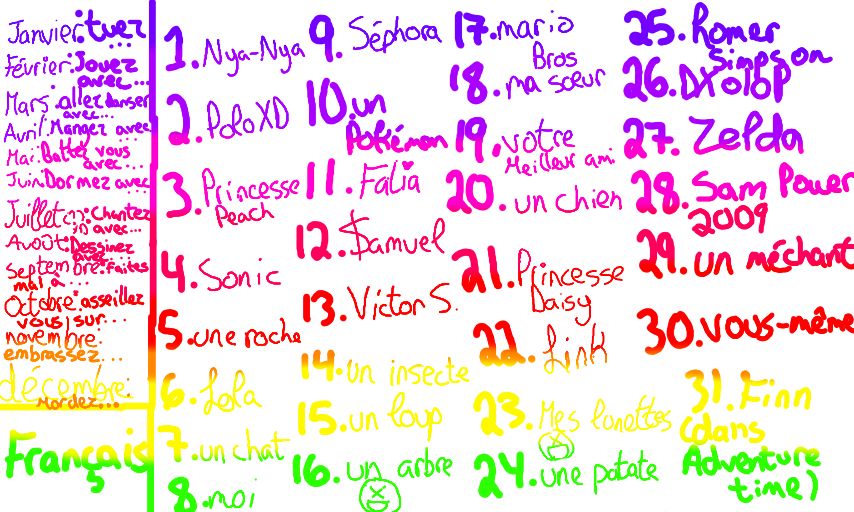 Janvier: tuez
...
Février: Jouez
avec...
Mars: allez danser
avec...
Avril: Mangez avec
...
Mai: Battez vous
avec...
Juin: Dormez avec
...
Juillet: Chantez
avec...
Avoût: Dessinez
avec...
Septembre: faites
mal à...
Octobre: asseillez
vous sur...
novembre:
embrassez...
décembre:
Mordez...
Français
5
1. Nya-Nya
2. Polo XD
3. Princesse
Peach
4. Sonic
5. une roche
6. Lola
7. un chat
8. moi
9. Séphora
10. un
Pokémon
11. Falia
12. Samuel
13. Victor S.
14. un insecte
15. un loup
16. un arbre
17. mario
Bros
18. ma sœur
19. votre
Meilleur ami
20. un chien
21. Princesse
Daisy
22. Link
23. Mes lunettes
24. une patate
25. Homer
Simpson
26. DXolop
27. Zelda
28. Sam Power
2009
29. un méchant
30. vous-même
31. Finn
(dans
Adventure
time)